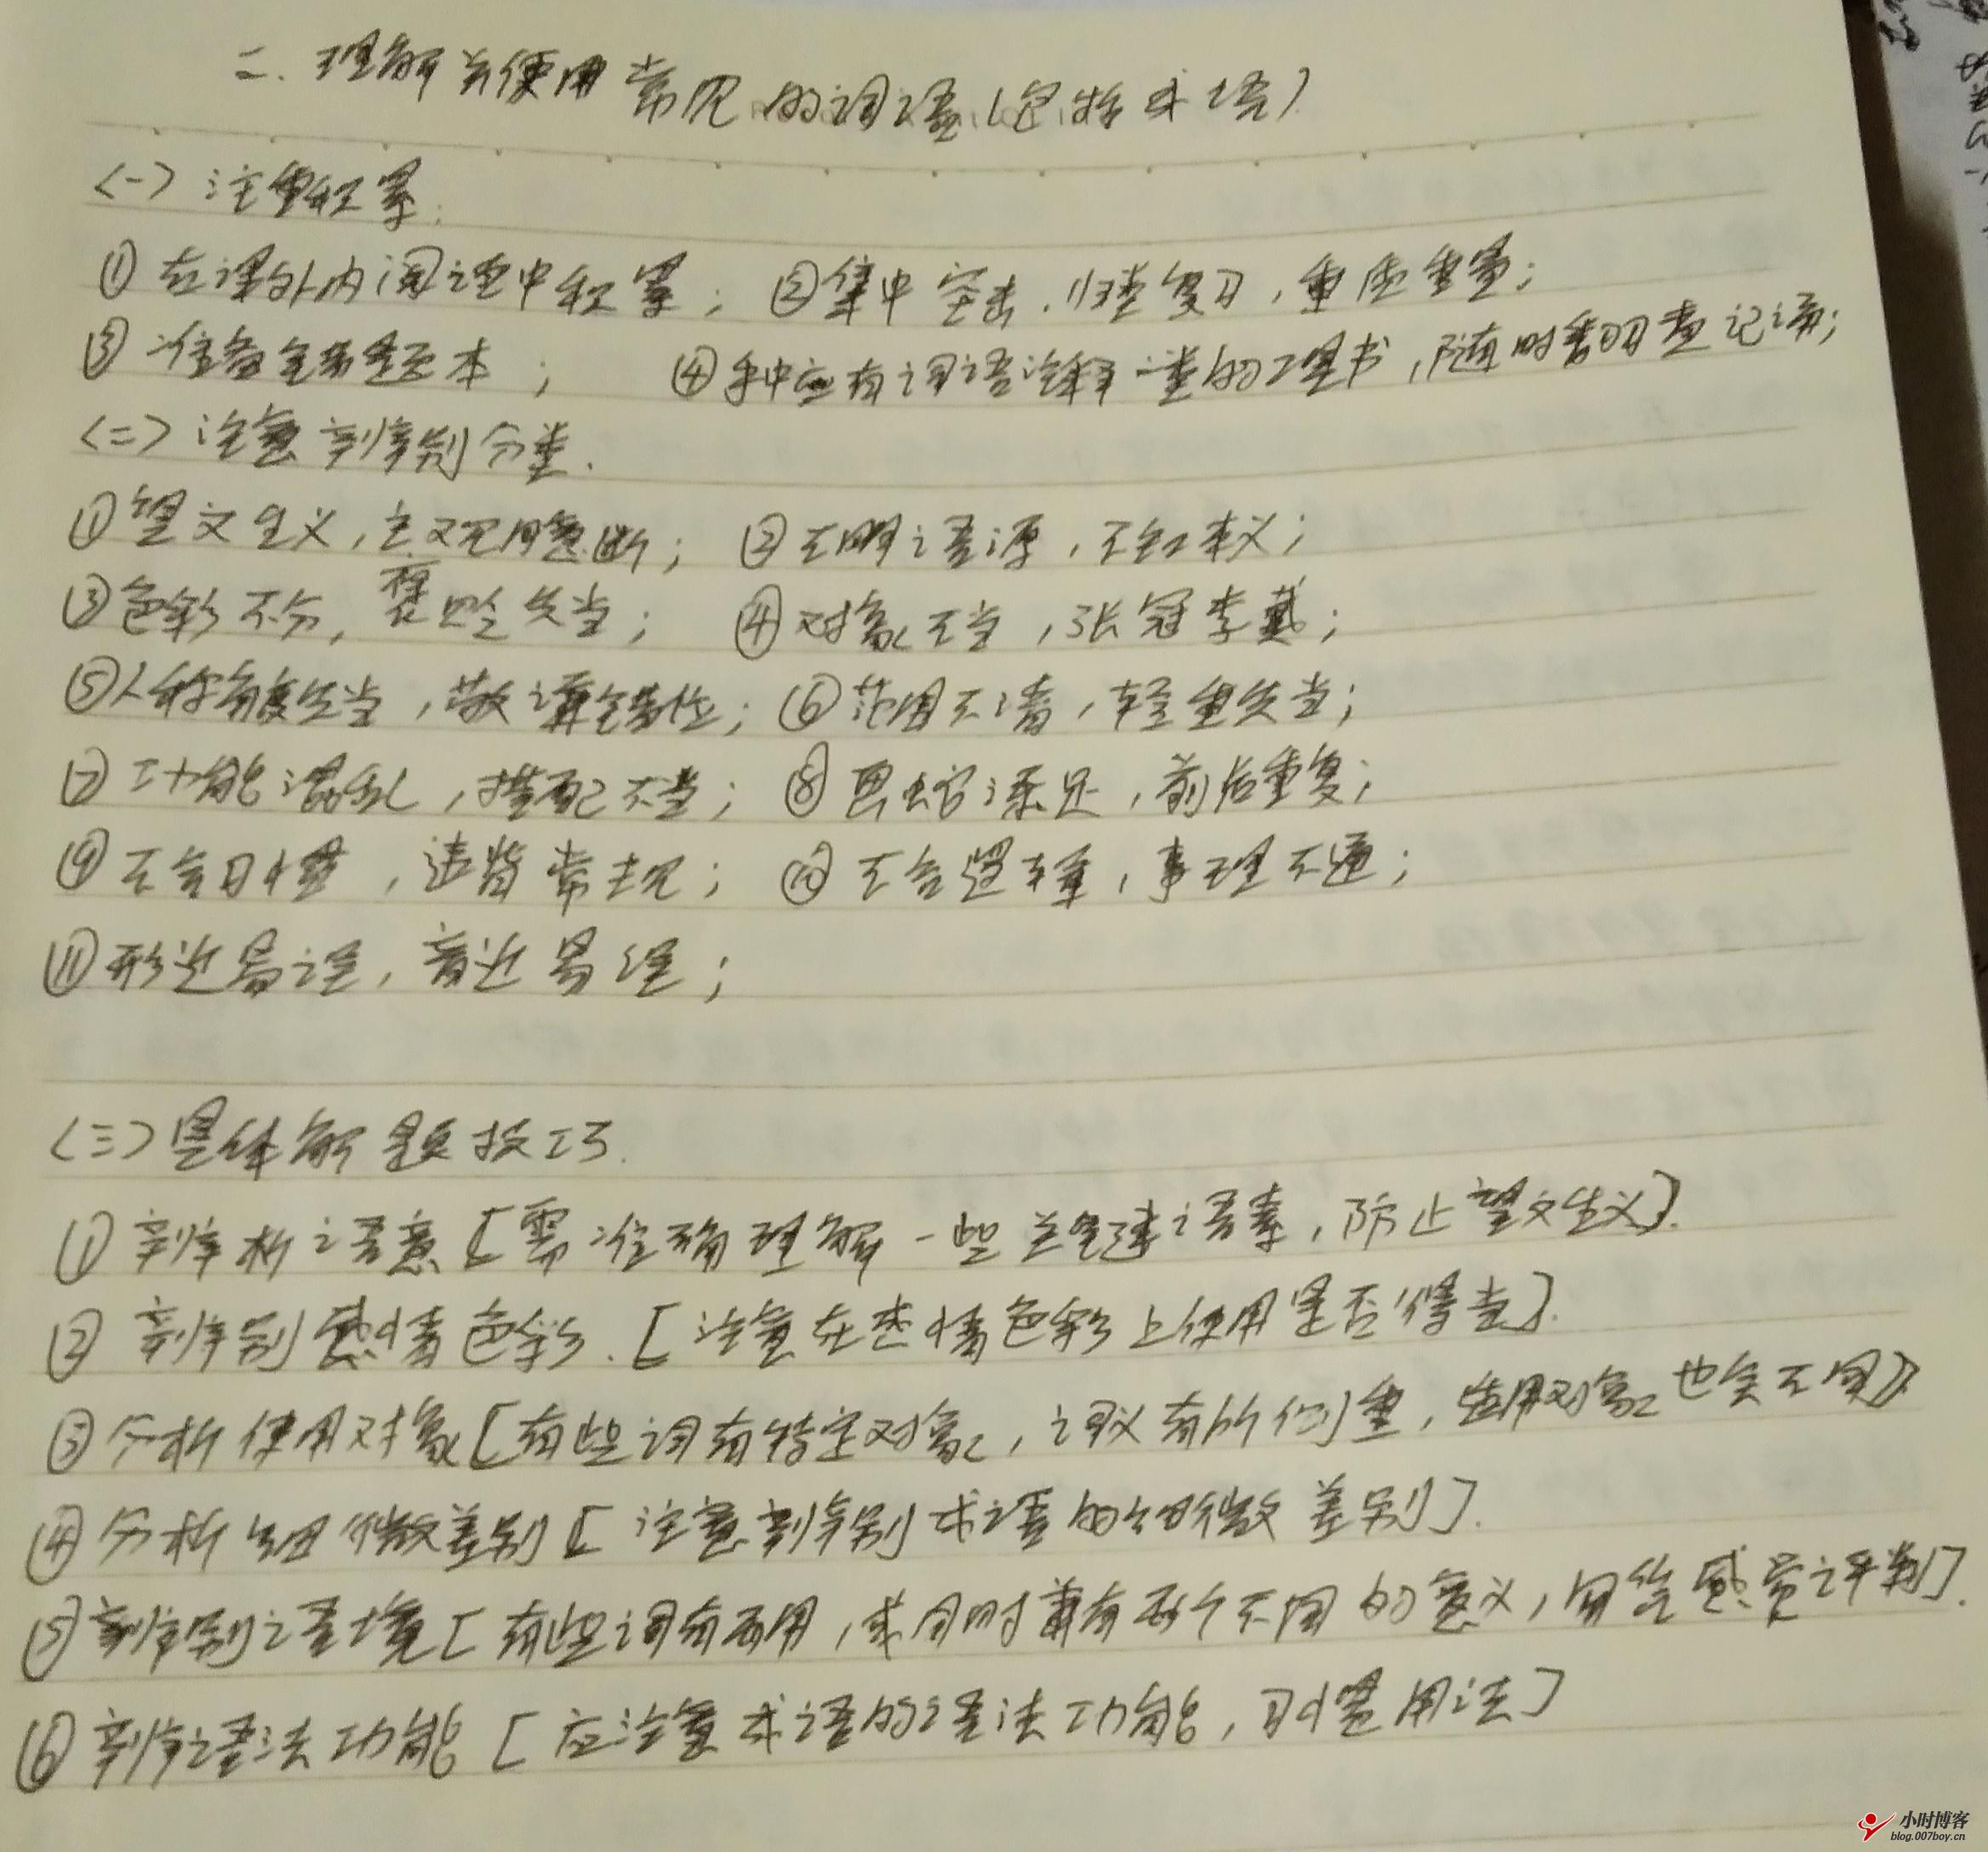 二.理解并使用常见的词语(包括成语)
<一>注重积累.
①在课外内阅读中积累; ②集中突击,归类复习,重质重量;
③准备错题本; ④手中应有词语注释一类的工具书,随时翻查记诵;
<二>注意辨别分类.
①望文生义,主观臆断; ②不明语源,不知本义;
③色彩不分,褒贬失当; ④对象不当,张冠李戴;
⑤人称角度失当,敬谦错位; ⑥范围不清,轻重失当;
⑦功能混乱,搭配不当; ⑧画蛇添足,前后重复;
⑨不合习惯,违背常规; ⑩不合逻辑,事理不通;
⑪形近易误,音近易混;
<三>具体解题技巧.
①辨析语意[需准确理解一些关键语素,防止望文生义].
②辨别感情色彩.[注意在感情色彩上使用是否得当].
③分析使用对象[有些词有特定对象,词义有所侧重,适用对象也会不同].
④分析细微差别[注意辨别成语的细微差别].
⑤辨别语境[有些词有两用,或同时兼有两个不同的意义,用凭感觉评判].
⑥辨别语法功能[应注意成语的语法功能,习惯用法]
小时博客
blog.007boy.cn